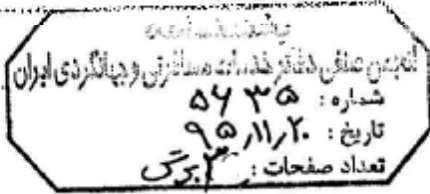 انجمن صنفی دفاتر خدمات مسافرتی و جهانگردی ایران
شماره : ۵۶۳۵
تاریخ : ۹۵,۱۱,۲۰
تعداد صفحات : ۳ برگ